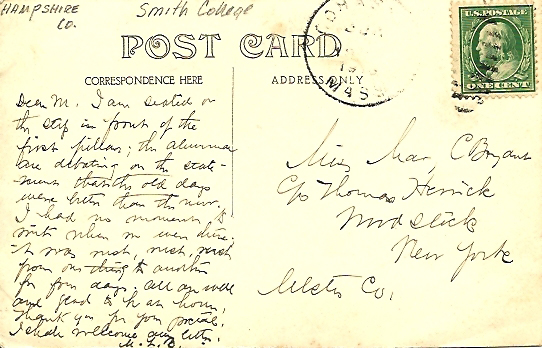 HAMPSHIRE
CO.
Smith College
POST CARD
CORRESPONDENCE HERE
ADDRESS ONLY
MASS
U.S. POSTAGE
ONE CENT
Dear M. I am seated on
the step in front of the
first pillar; the alumnae
are debating on the state-
ment that the old days
were better than the new.
I had no moments to
write when we were there.
It was rush, rush, rush
from one thing to another
for four days. All are well
and glad to be at home.
Thank you for your postal.
I shall welcome any letter.
M. L. B.
Miss May C Bryant
c/o Thomas Herrick
New York
Ulster Co.